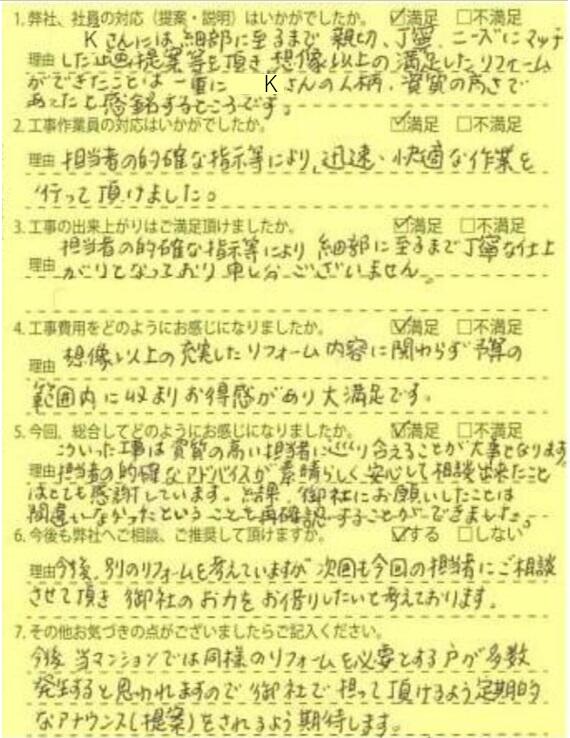 1.弊社、社員の対応（提案・説明）はいかがでしたか。 ☑満足 □不満足
Kさんには、細部に至るまで 親切、丁寧、ニーズにマッチ
理由 した企画提案等を頂き 想像以上の満足したリフォーム
ができたことは一重に Kさんの人柄、資質の高さで
あったと感銘するところです。
2.工事作業員の対応はいかがでしたか。 ☑満足 □不満足
理由 担当者の的確な指示等により、迅速、快適な作業を
行って頂けました。
3.工事の出来上がりはご満足頂けましたか。 ☑満足 □不満足
担当者の的確な指示等により 細部に至るまで丁寧な仕上
理由 がりとなっており 申し分ございません。
4.工事費用をどのようにお感じになりましたか。 ☑満足 □不満足
理由 想像以上の充実したリフォーム内容に関わらず予算の
範囲内に収まりお得感があり大満足です。
5.今回、総合してどのようにお感じになりましたか。 ☑満足 □不満足
こういった工事は資質の高い担当者に巡り合えることが大事となります。
理由 担当者の的確なアドバイスが素晴らしく安心して相談出来たこと
はとても感謝しています。結果、御社にお願いしたことは
間違いなかったということを再確認することができました。
6.今後も弊社へご相談、ご推奨して頂けますか。 ☑する □しない
理由 今後、別のリフォームを考えていますが 次回も今回の担当者にご相談
させて頂き 御社のお力をお借りしたいと考えております。
7.その他お気づきの点がございましたらご記入ください。
今後 当マンションでは同様のリフォームを必要とする戸が多数
発生すると思われますので 御社で担って頂けるよう定期的
なアナウンス(提案)をされるよう期待します。